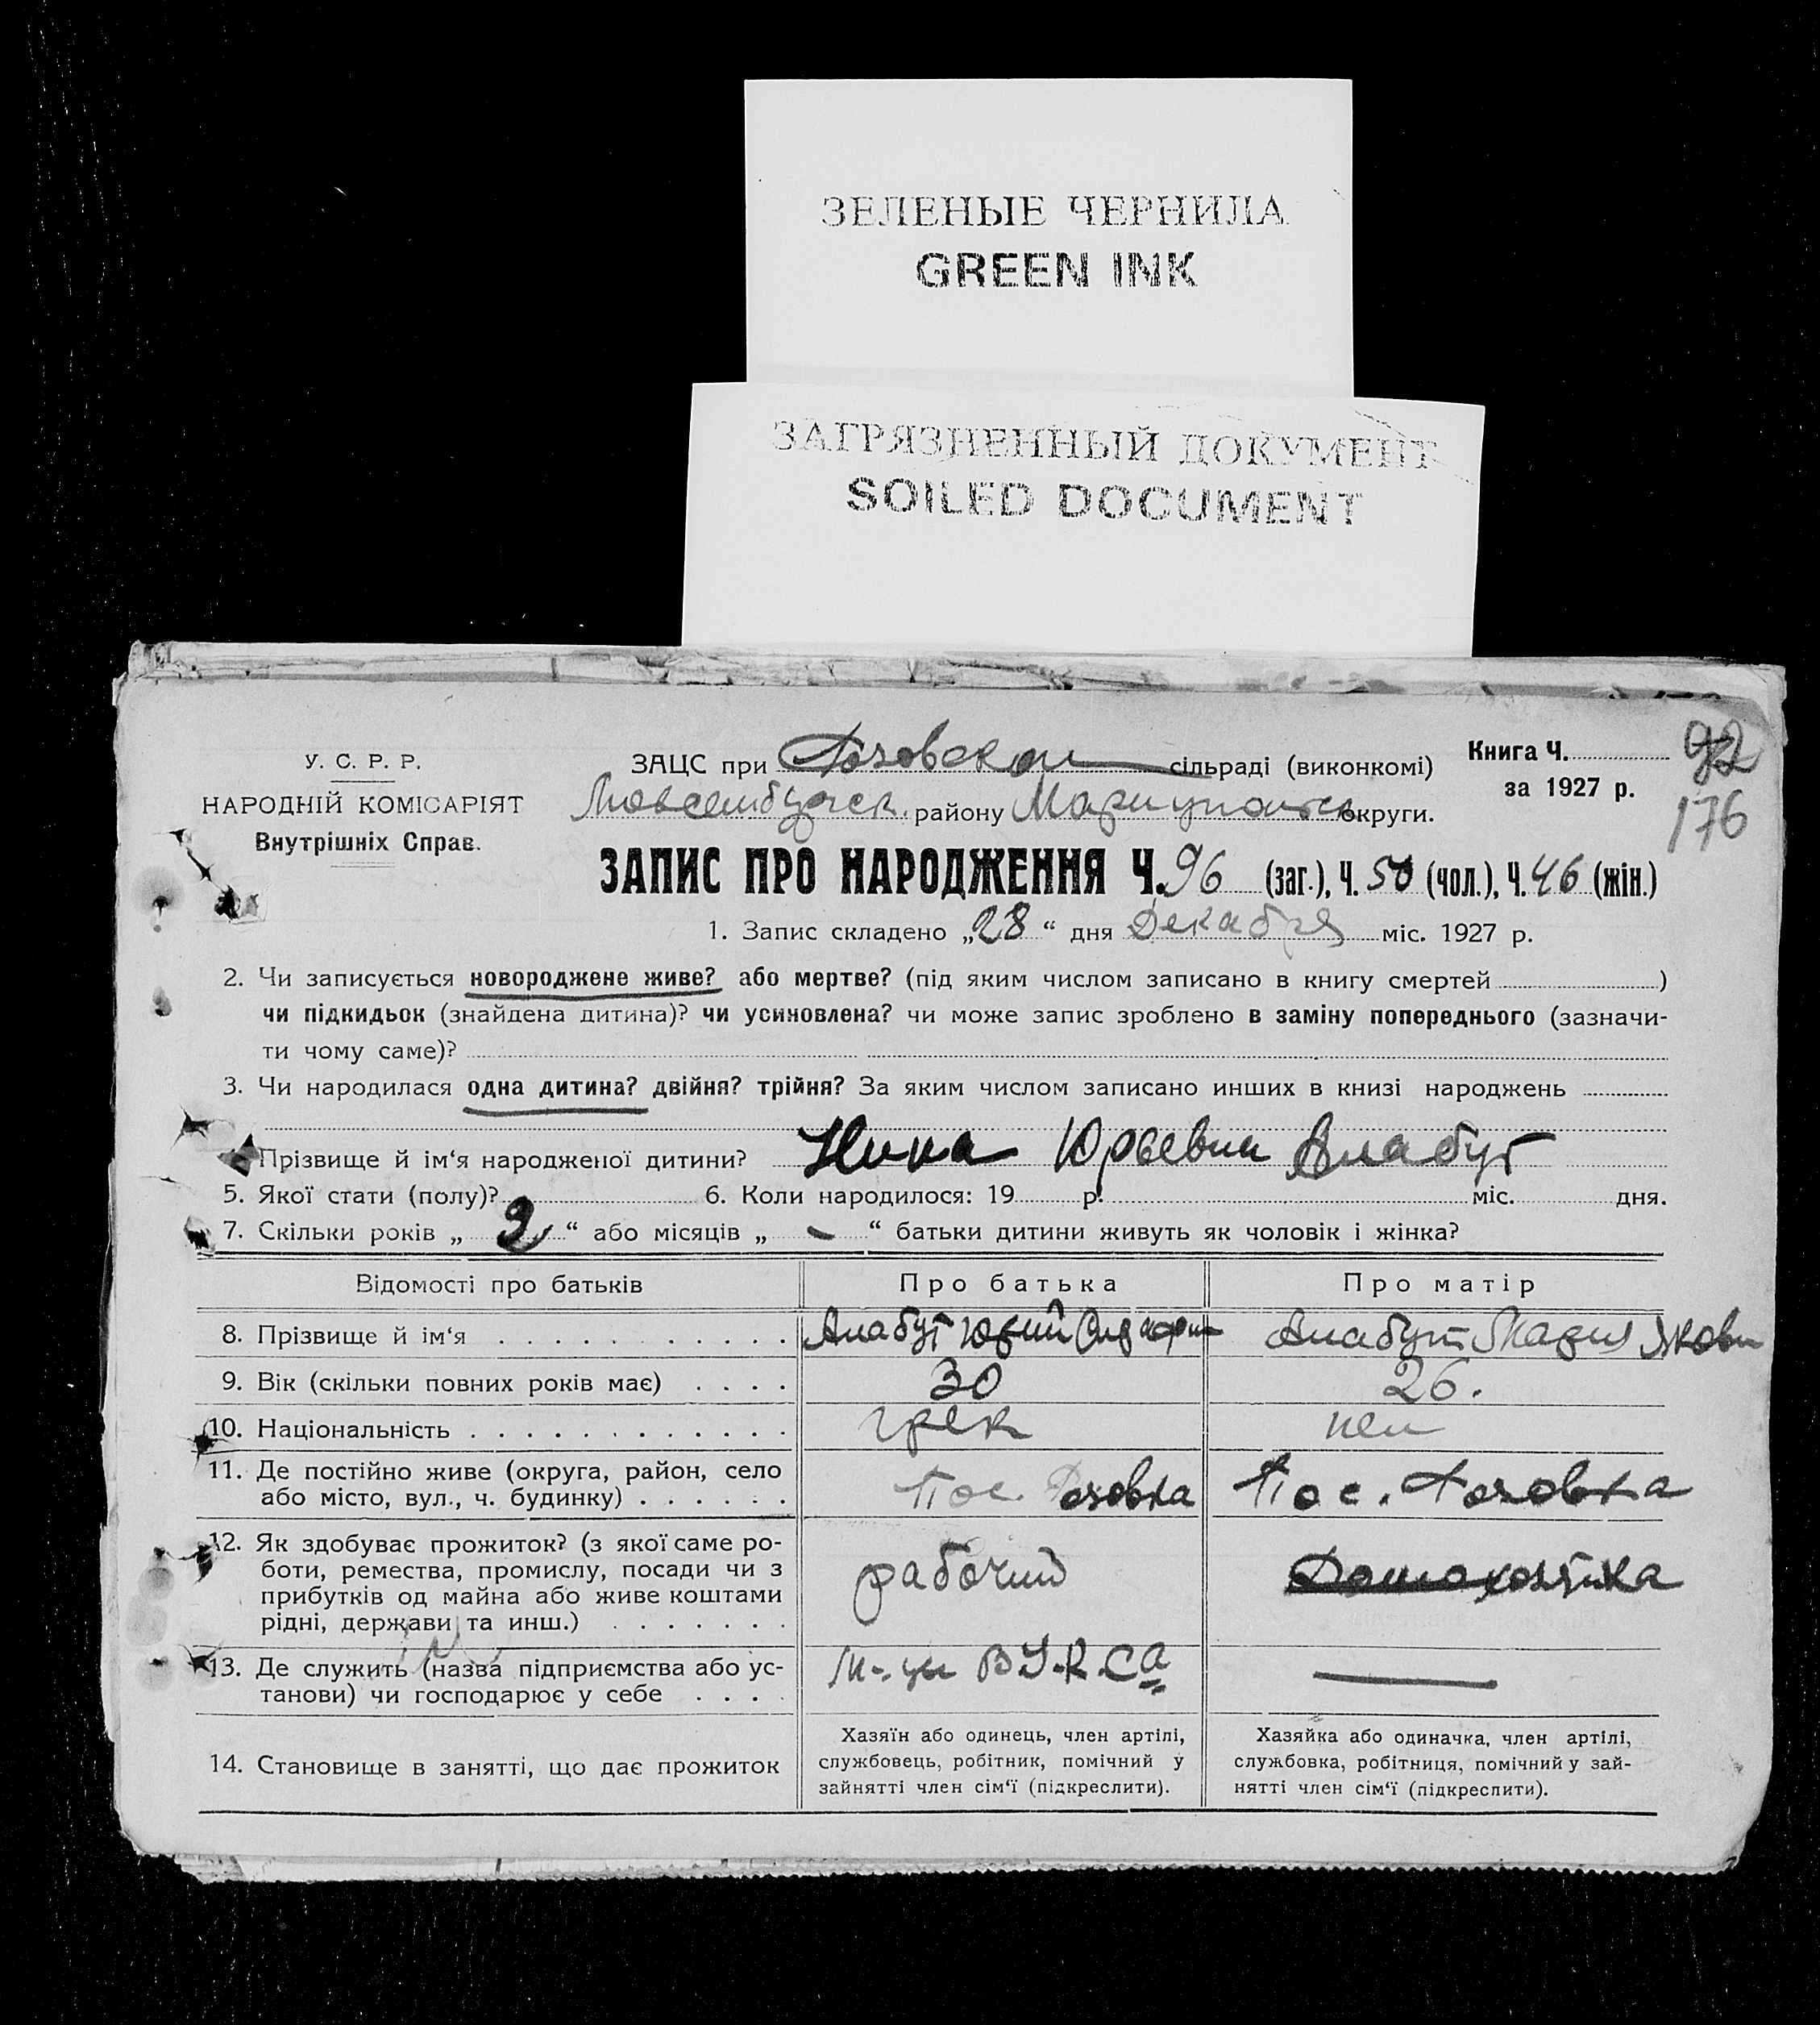 ЗЕЛЕНЫЕ ЧЕРНИЛА
GREEN INK
ЗАГРЯЗНЕННЫЙ ДОКУМЕНТ
SOILED DOCUMENT
92
176
У. С. Р. Р.
НАРОДНІЙ КОМІСАРІЯТ
Внутрішніх Справ.
ЗАЦС при Розовском сільраді (виконкомі)
району Мариупольск округи.
Книга Ч.
за 1927 р.
ЗАПИС ПРО НАРОДЖЕННЯ Ч. 96 (заг.), Ч. 50 (чол.), Ч. 46 (жін.)
1. Запис складено „28“ дня Декабря міс. 1927 р.
2. Чи записується новороджене живе? або мертве? (під яким числом записано в книгу смертей )
чи підкидьок (знайдена дитина)? чи усиновлена? чи може запис зроблено в заміну попереднього (зазначи-
ти чому саме)?
3. Чи народилася одна дитина? двійня? трійня? За яким числом записано инших в книзі народжень
Прізвище й ім‘я народженої дитини? Нина Юрьевна Алабут
5. Якої стати (полу)? 6. Коли народилося: 19 р. міс. дня.
7. Скільки років „ 2 “ або місяців „ – “ батьки дитини живуть як чоловік і жінка?
Відомості про батьків Про батька Про матір
8. Прізвище й ім‘я Алабут Юрий Алабут Мария Яковл
9. Вік (скільки повних років має) 30 26.
10. Національність грек нем
11. Де постійно живе (округа, район, село
або місто, вул., ч. будинку) Пос. Розовка Пос. Розовка
12. Як здобуває прожиток? (з якої саме ро-
боти, ремества, промислу, посади чи з
прибутків од майна або живе коштами
рідні, держави та инш.) рабочий Домохозяйка
13. Де служить (назва підприємства або ус-
танови) чи господарює у себе
14. Становище в занятті, що дає прожиток
Хазяїн або одинець, член артілі,
службовець, робітник, помічний у
зайнятті член сім‘ї (підкреслити).
Хазяйка або одиначка, член артілі,
службовка, робітниця, помічний у зай-
нятті член сім‘ї (підкреслити).